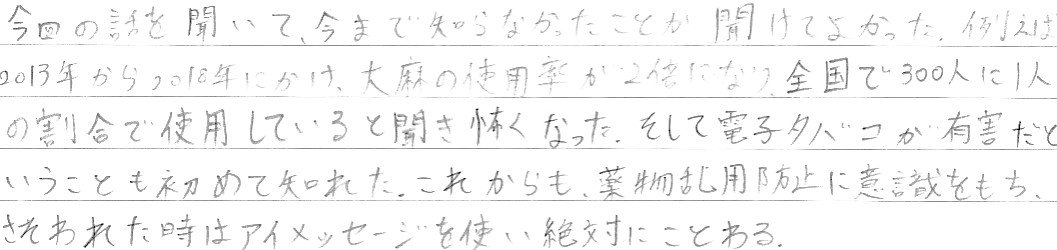 今回の話を聞いて、今まで知らなかったことが聞けてよかった。例えば
2013年から2018年にかけ、大麻の使用率が2倍になり、全国で300人に1人
の割合で使用していると聞き怖くなった。そして電子タバコが有害だと
いうことも初めて知れた。これからも、薬物乱用防止に意識をもち、
さそわれた時はアイメッセージを使い絶対にことわる。